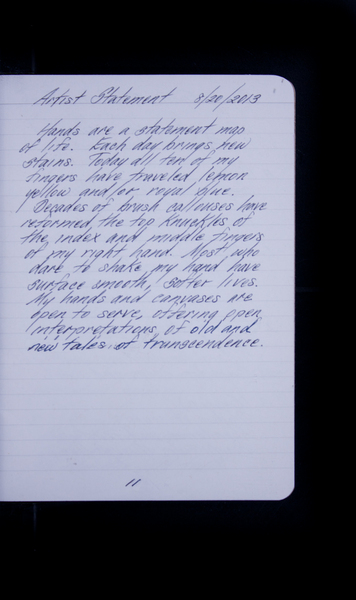 Artist Statement 8/20/2013
Hands are a statement map
of life. Each day brings new
stains. Today all ten of my
fingers have traveled lemon
yellow and/or royal blue.
Decades of brush callouses have
reformed the top knuckles of
the index and middle fingers
of my right hand. Most who
dare to shake my hand have
surface smooth, softer lives.
My hands and canvases are
open to serve, offering open
interpretations of old and
new tales of transcendence.
11